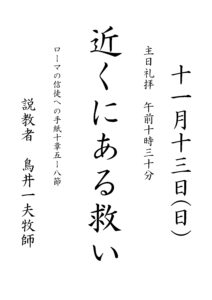 十一月十三日(日)
主日礼拝 午前十時三十分
近くにある救い
ローマの信徒への手紙十章五ー八節
説教者 鳥井一夫牧師